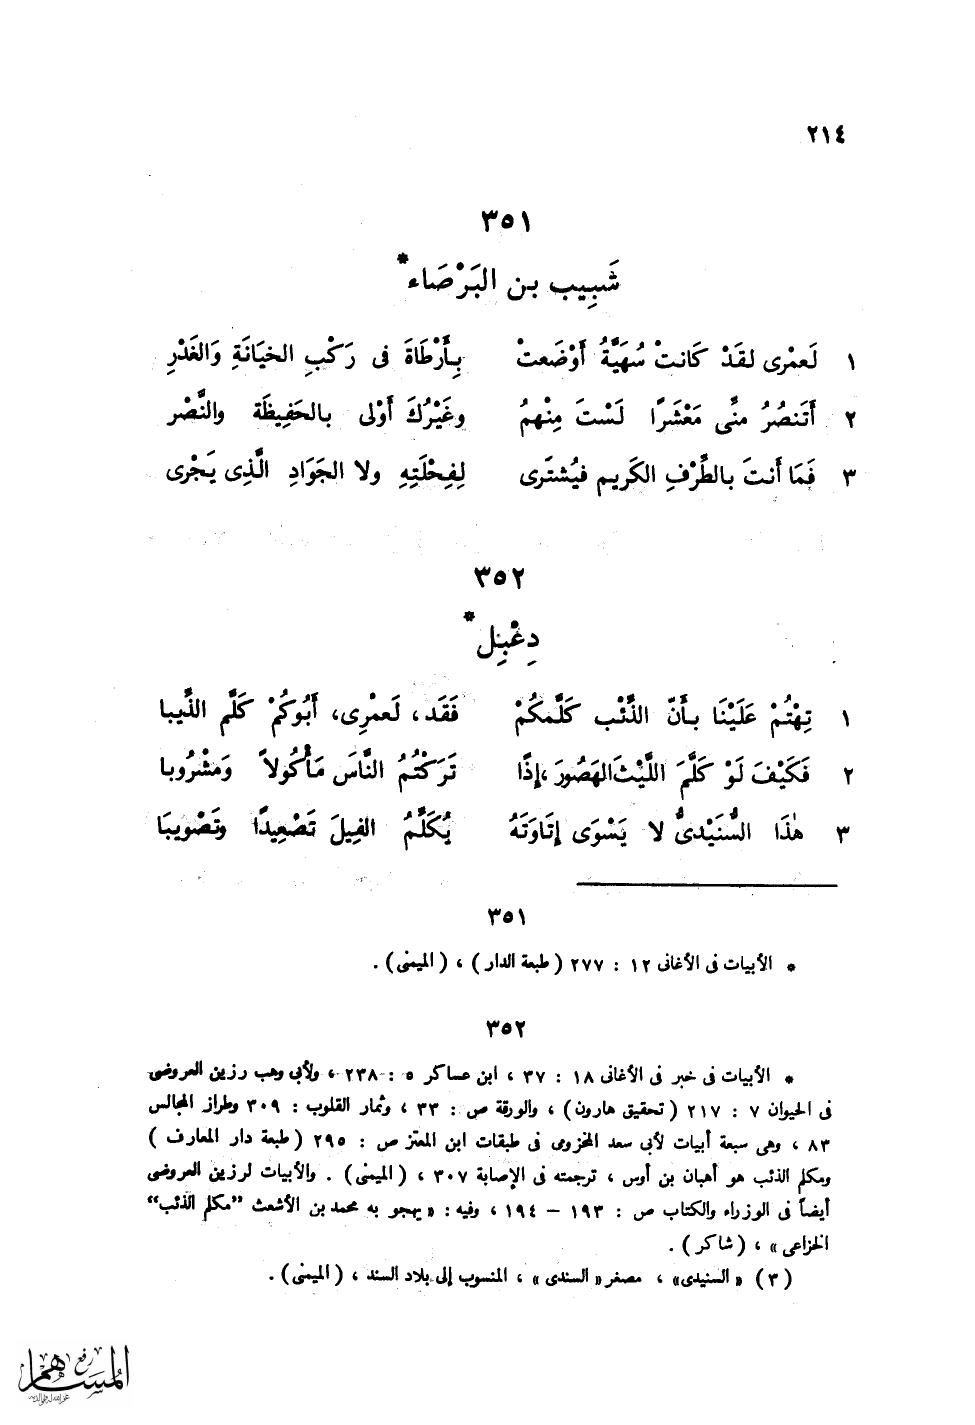 ٢١٤
٣٥١
شَبِيب بن البَرْصَاء*
١ لَعمْرى لقَدْ كَانتْ سُهَيَّةُ أَوْضَعتْ بِأَرْطَاةَ فى رَكْبِ الخيَانَةِ وَالغَدْرِ
٢ أَتَنصُرُ منِّى مَعْشَرًا لَسْتَ مِنْهمُ وغَيْرُكَ أَوْلى بالحَفِيظَة والنَّصْر
٣ فَمَا أَنتَ بالطِّرْفِ الكَريم فيُشتَرى لِفِحْلَتِهِ ولا الجَوَادِ الَّذِى يَجْرى
٣٥٢
دِعْبِل*
١ تِهْتُمْ عَلَيْنَا بأَنّ الذِّئْب كَلَّمكُمْ فَقَد، لَعمْرِى، أَبُوكُمْ كَلَّم الذِّيبا
٢ فَكَيْفَ لَوْ كَلَّمَ اللَّيْثَ الهَصُورَ، إِذًا تَرَكْتُمُ النَّاسَ مَأْكُولاً وَمشْرُوبا
٣ هٰذَا السُّنَيْدىُّ لا يَسْوَى إِتَاوَتَهُ يُكَلَّمُ الفِيلَ تَصْعِيدًا وتَصْويبَا
٣٥١
* الأبيات فى الأغانى ١٢ : ٢٧٧ ( طبعة الدار ) ، ( الميمنى ) .
٣٥٢
* الأبيات فى خبر فى الأغانى ١٨ : ٣٧ ، ابن عساكر ٥ : ٢٣٨ ، ولأبى وهب رزين العروضى
فى الحيوان ٧ : ٢١٧ ( تحقيق هارون ) ، والورقة ص : ٣٣ ، وثمار القلوب : ٣٠٩ وطراز المجالس
٨٣ ، وهى سبعة أبيات لأبى سعد المخزومى فى طبقات ابن المعتز ص : ٢٩٥ ( طبعة دار المعارف )
ومكلم الذئب هو أهبان بن أوس ، ترجمته فى الإصابة ٣٠٧ ، ( الميمنى ) . والأبيات لرزين العروضى
أيضاً فى الوزراء والكتاب ص : ١٩٣ – ١٩٤ ، وفيه : « يهجو به محمد بن الأشعث “مكلم الذئب“
الخزاعى » ، ( شاكر ) .
( ٣ ) « السنيدى » ، مصغر « السندى » ، المنسوب إلى بلاد السند ، ( الميمنى ) .